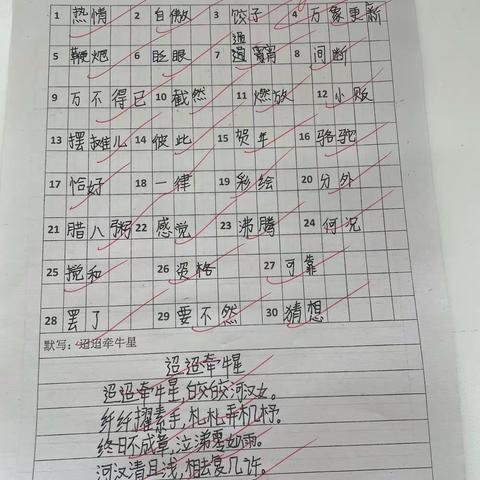 1 热情 2 自傲 3 饺子 4 万象更新
5 鞭炮 6 眨眼 7 通宵 8 间断
9 万不得已 10 截然 11 燃放 12 小贩
13 摆摊儿 14 彼此 15 贺年 16 骆驼
17 恰好 18 一律 19 彩绘 20 分外
21 腊八粥 22 感觉 23 沸腾 24 何况
25 搅和 26 资格 27 可靠
28 罢了 29 要不然 30 猜想
默写：迢迢牵牛星
迢迢牵牛星
迢迢牵牛星,皎皎河汉女。
纤纤擢素手,札札弄机杼。
终日不成章,泣涕零如雨。
河汉清且浅,相去复几许。